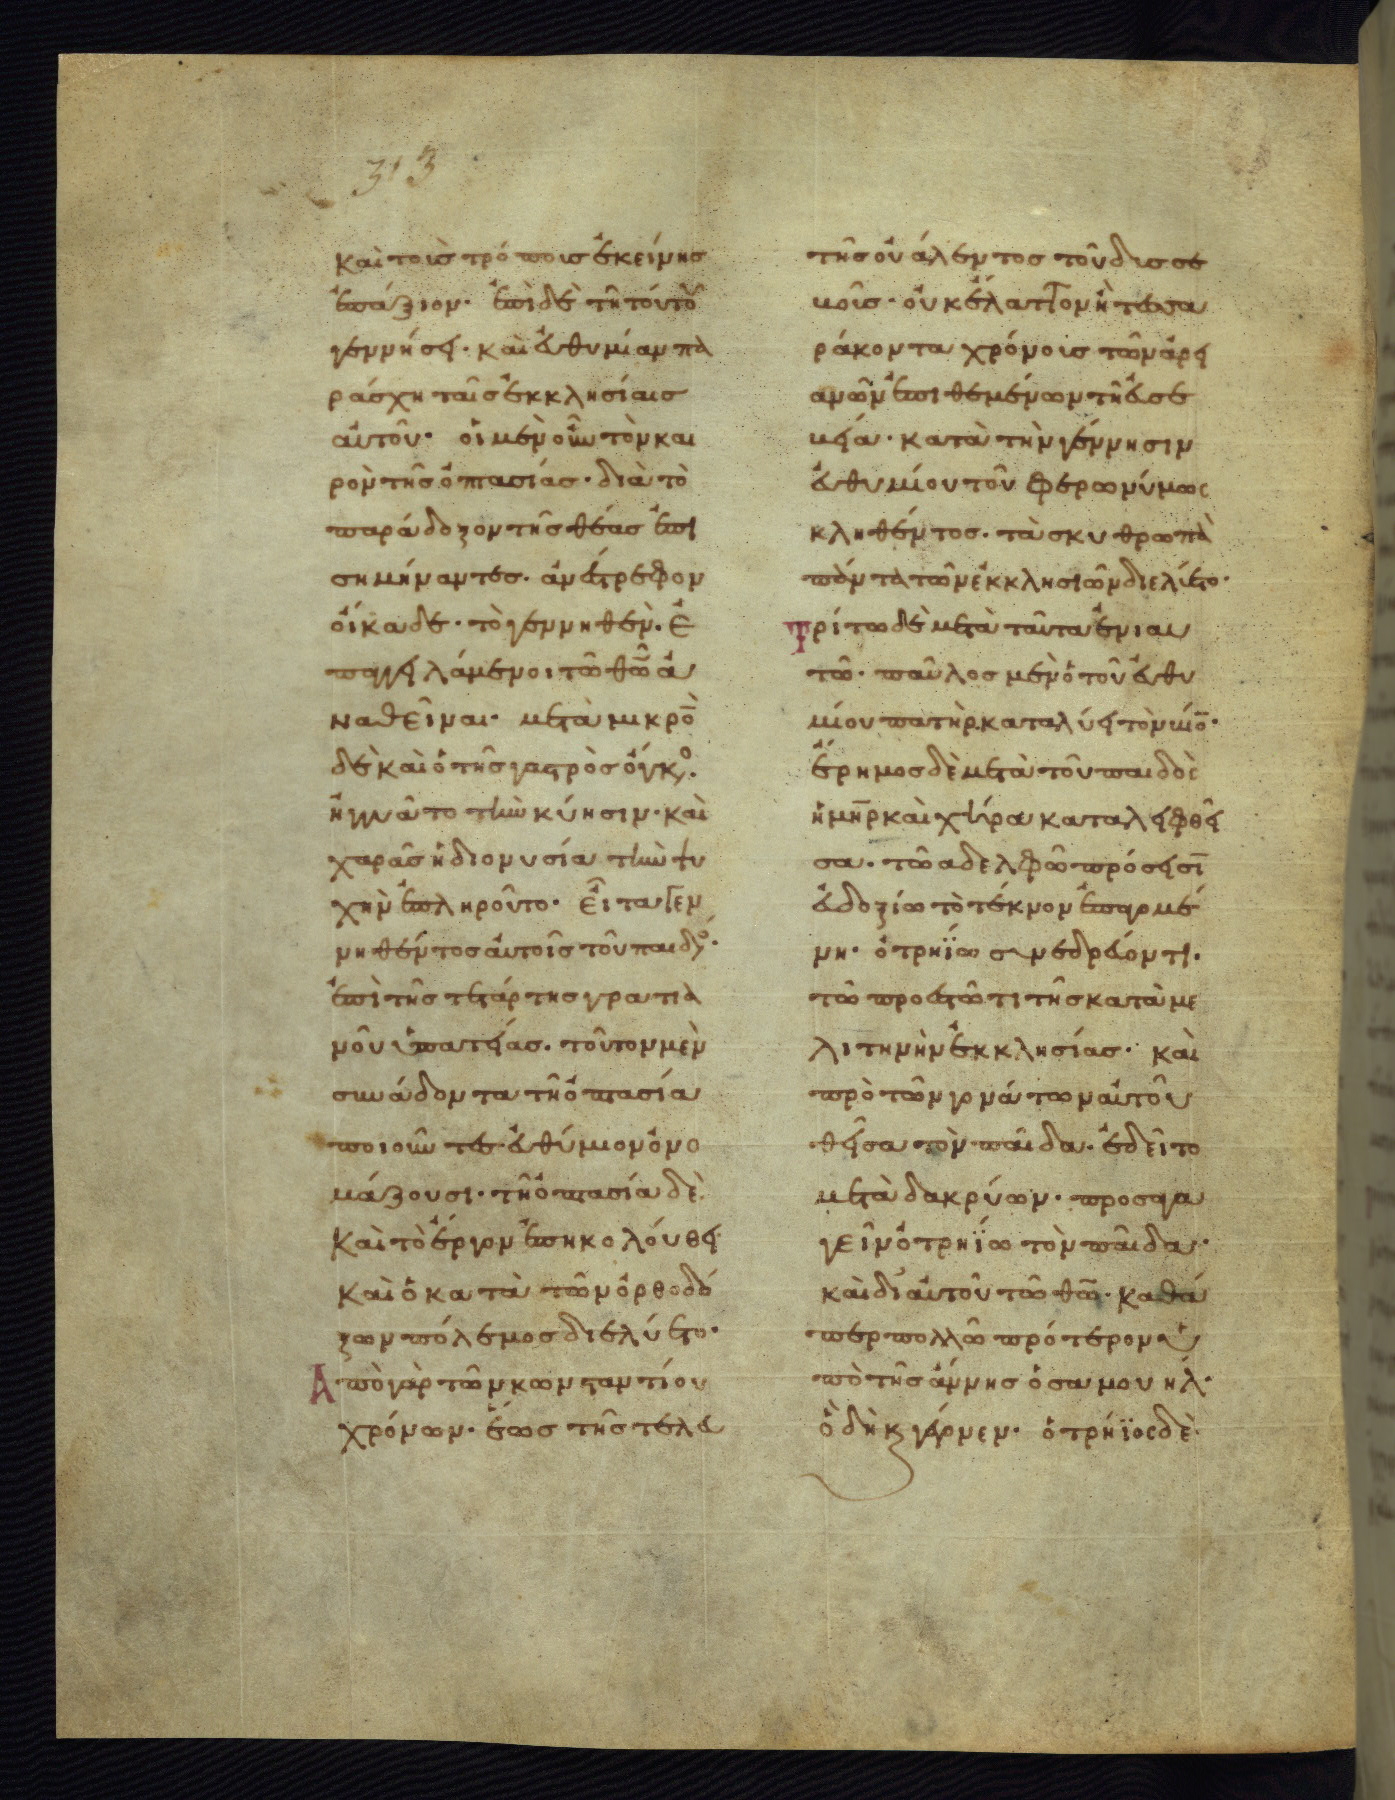 313
καὶ τοῖς τρόποις ἐκείνης
ἐπάξιον· ἐπὶ δὲ τῆ τούτου
γεννήσει· καὶ εὐθυμίαν πα
ράσχη ταῖς ἐκκλησίαις
αὐτοῦ· οἱ μὲν οὖν τὸν και
ρὸν τῆς ὀπτασίας· διὰ τὸ
παράδοξον τῆς θέας ἐπι
σημήναντες· ἀνέστρεφον
οἴκαδε· τὸ γεννηθὲν· ἐ
παγγειλάμενοι τῶ θῶ ἀ
ναθεῖναι· μετὰ μικρὸ
δὲ καὶ ὁ τῆς γαστρὸς ὄγκος·
ἠγγυᾶτο τὴν κύησιν· καὶ
χαρᾶς ἡ διονυσία τὴν ψυ
χὴν ἐπληροῦτο· εἶτα γεν
νηθέντος αὐτοῖς τοῦ παιδίου·
ἐπὶ τῆς τετάρτης γρατια
νοῦ ὑπατείας· τοῦτον μὲν
συνάδοντα τῆ ὀπτασία
ποιοῦντες· εὐθύμιον ὀνο
μάζουσι· τῆ ὀπτασία δὲ
καὶ τὸ ἔργον ἐπηκολούθει·
καὶ ὁ κατὰ τῶν ὀρθοδό
ξων πόλεμος διελύετο·
Ἀπὸ γὰρ τῶν κωνσταντίου
χρόνων· ἕως τῆς τελευ
τῆς οὐάλεντος τοῦ δυσσε
μοῖς· οὐκ ἔλαττον ἢ τεσσα
ράκοντα χρόνοις τῶν ἀρει
ανῶν ἐπιθεμένων τῆ εὐσε
βεία· κατὰ τὴν γέννησιν
εὐθυμίου τοῦ φερωνύμως
κληθέντος· τὰ σκυθρωπὰ
πάντα τῶν ἐκκλησιῶν διελύετο·
Τρίτω δὲ μετὰ ταῦτα ἐνιαυ
τῶ· παῦλος μὲν ὁ τοῦ εὐθυ
μίου πατὴρ καταλύει τὸν βίο·
ἔρημος δὲ μετὰ τοῦ παιδὸς
ἡ μηρ καὶ χήρα καταλειφθεῖ
σα· τῶ ἀδελφῶ πρόσεισι
εὐδοξίω τὸ τέκνον ἐπαγομέ
νη· ὀτρηΐω συνεδρεύοντι·
τῶ προεστῶτι τῆς κατὰ με
λιτηνὴν ἐκκλησίας· καὶ
πρὸ τῶν γονάτων αὐτοῦ
θεῖσα τὸν παῖδα· ἐδεῖτο
μετὰ δακρύων· προσαγα
γεῖν ὀτρηΐω τὸν παῖδα·
καὶ δι' αὐτοῦ τῶ θῶ· καθά
περ πολλῶ πρότερον ὑ
πὸ τῆς ἄννης ὁ σαμουήλ·
ὃ δὴ κ γέγονεν· ὀτρήϊος δὲ